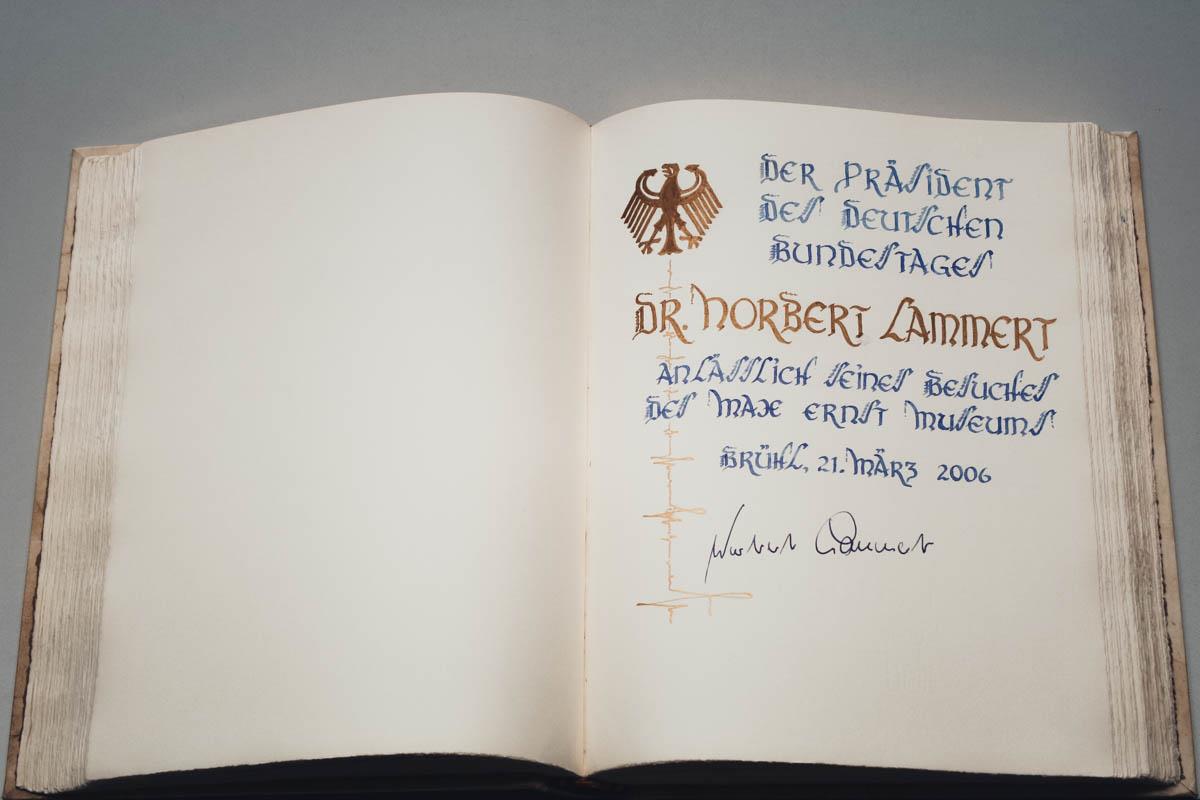 DER PRÄSIDENT
DES DEUTSCHEN
BUNDESTAGES
DR. NORBERT LAMMERT
ANLÄSSLICH SEINES BESUCHES
DES MAX ERNST MUSEUMS
BRÜHL, 21. MÄRZ 2006
Norbert Lammert